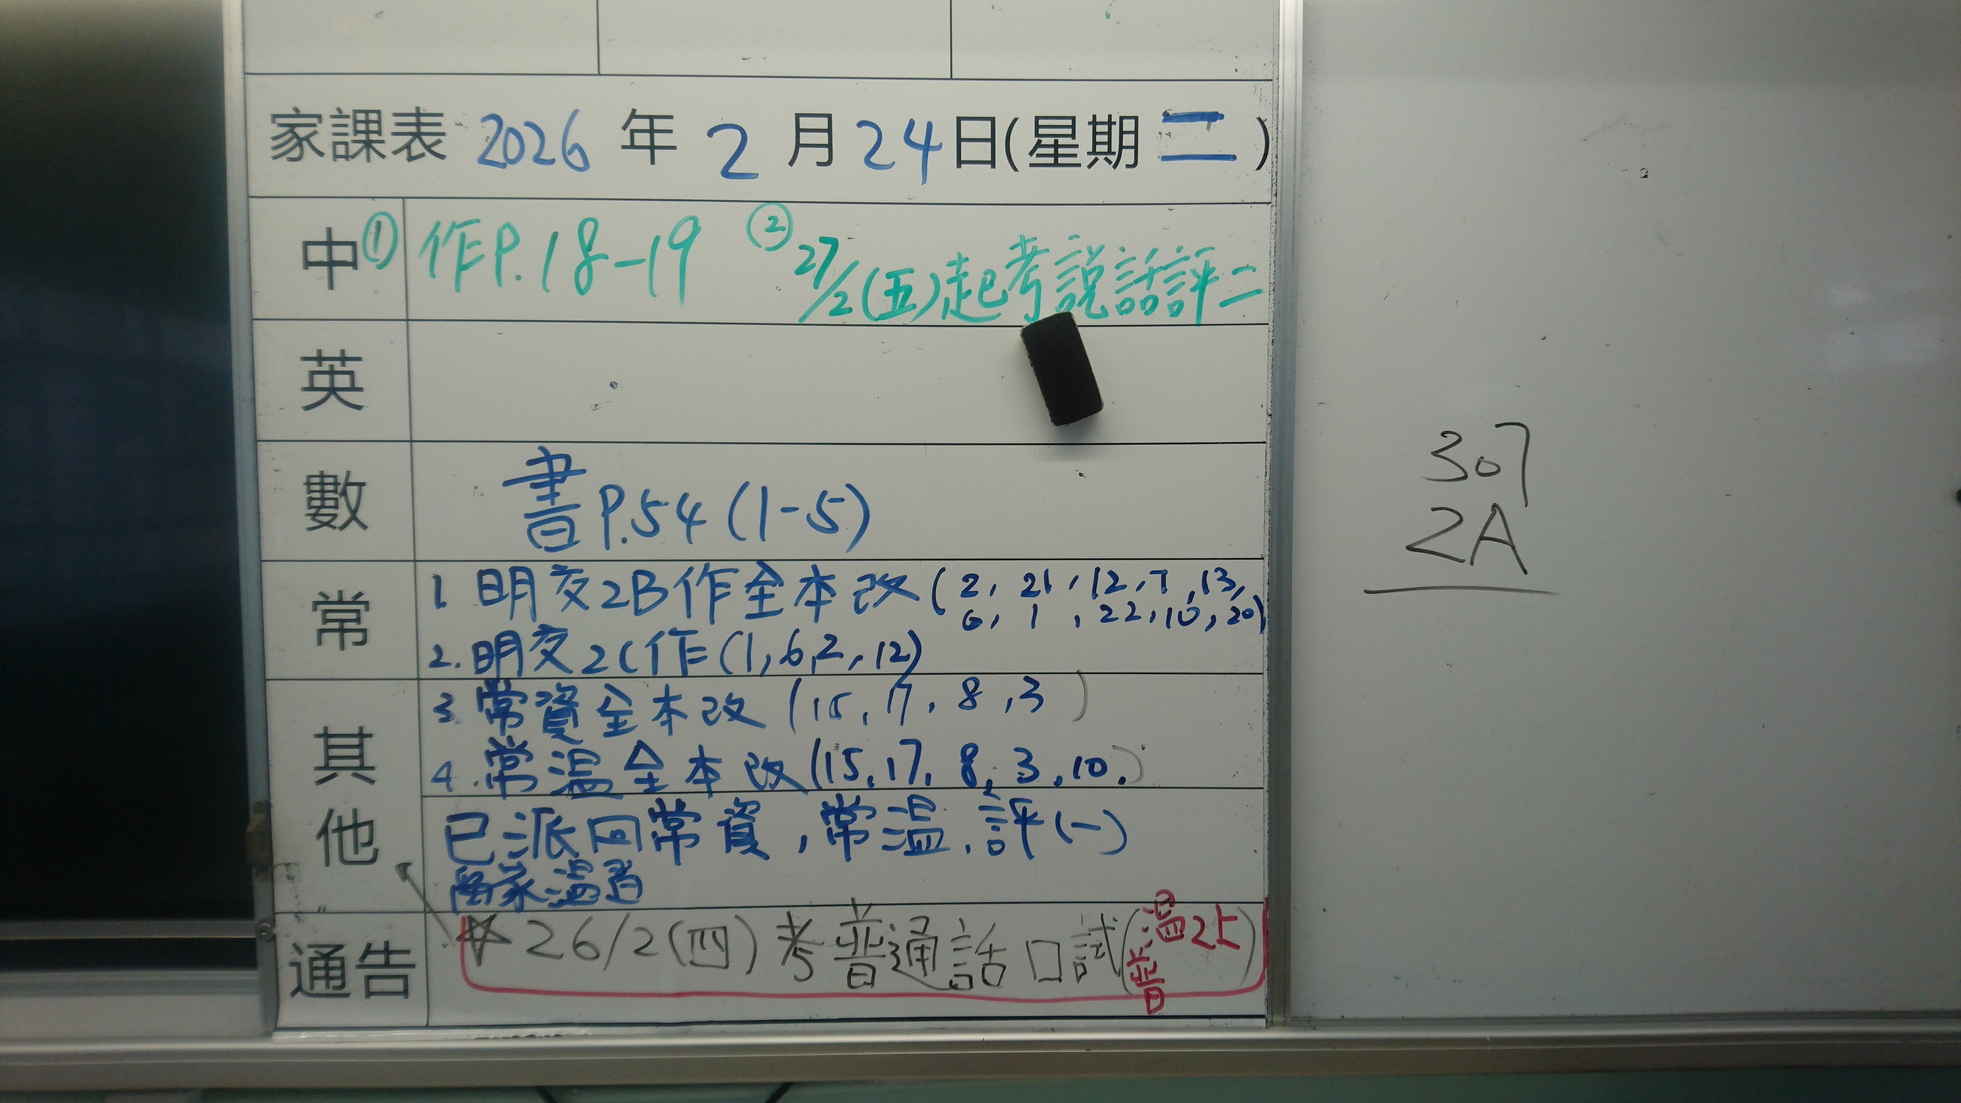 家課表 2026 年 2 月 24 日(星期 二 )
中 ① 作P.18-19 ② 27/2(五)起考説話評二
英
數 書P.54(1-5)
常 1. 明交2B作全本改(2, 21, 12, 7, 13,
6, 1, 22, 10, 20)
2. 明交2C作(1, 6, 2, 12)
3. 常資全本改(15, 17, 8, 3)
其他 4. 常溫全本改(15, 17, 8, 3, 10.)
已派回常資,常溫,評(一)
家溫習
通告 ☆26/2(四)考普通話口試(溫2上
普)
307
2A